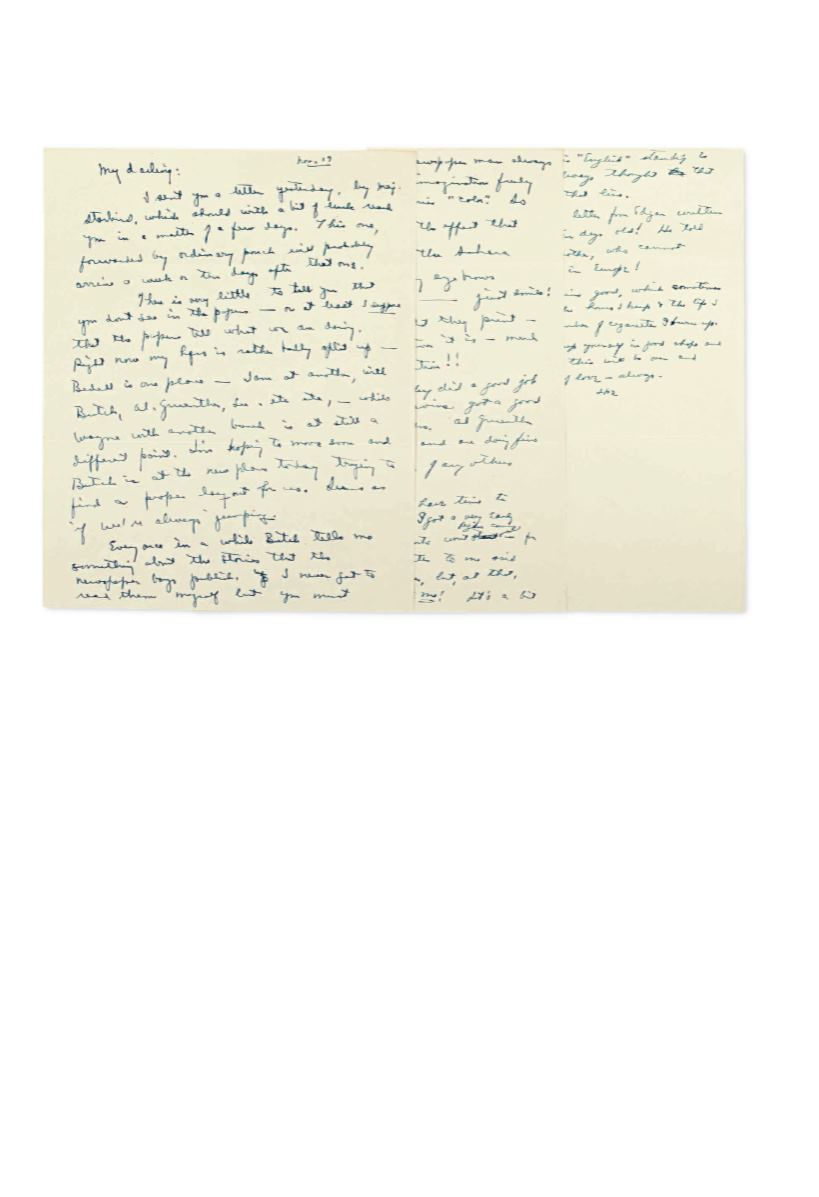 Nov. 19
My darling:
I sent you a letter yesterday, by Maj.
Stockins, which should with a bit of luck reach
you in a matter of a few days. This one,
forwarded by ordinary pouch will probably
arrive a week or ten days after that one.
There is very little to tell you that
you don't see in the papers — or at least I suppose
that the papers tell what we are doing.
Right now my Hqrs is rather badly split up —
Bedell is one place — I am at another, with
Butch, Al. Gruenther, Lee. etc etc, — while
Wayne with another bunch is at still a
different point. I'm hoping to move soon and
Butch is at the new place today trying to
find a proper layout for us. Seems as
if we're always jumping.
Every once in a while Butch tells me
something about the stories that the
newspaper boys publish. I never get to
read them myself but you must
newspaper man always
imagination freely
"color". So
the effect that
the Sahara
eyebrows
good smile!
they print —
it is — mark
!!
did a good job
got a good
Al Gruenther
and are doing fine
of any others
have time to
I got a very early
for
to me said
but, at that,
me! It's a bit
"English" standing is
always thought that
that line.
letter from Edgar written
days old! He told
who cannot
in Europe!
good, which sometimes
hours I keep & the
number of cigarettes I burn up.
up yourself in good shape and
this war to own and
of love — always.
Ike